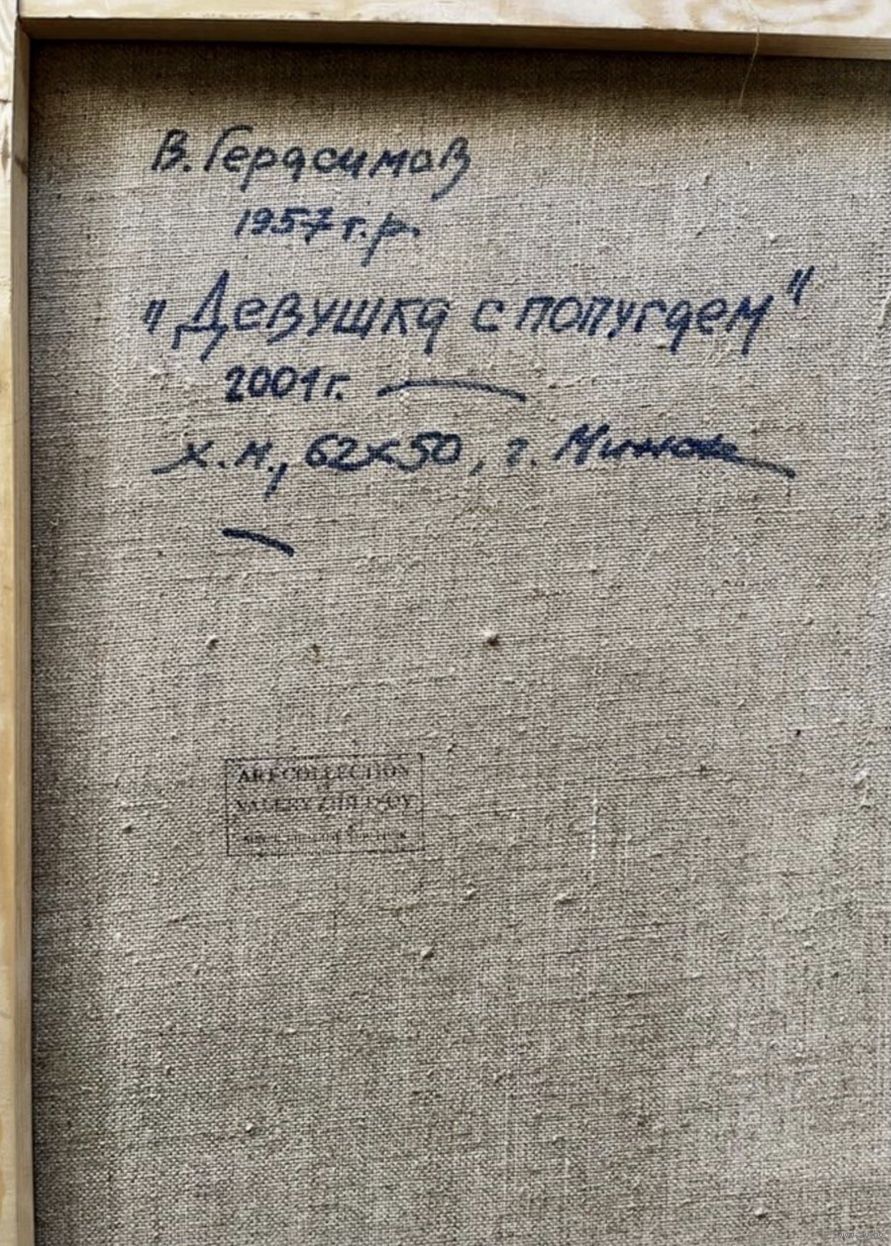 В. Герасимов
1957 г.р.
"Девушка с попугаем"
2001 г.
х.м., 62х50, г. Минск
ARTCOLLECTION
VALERY